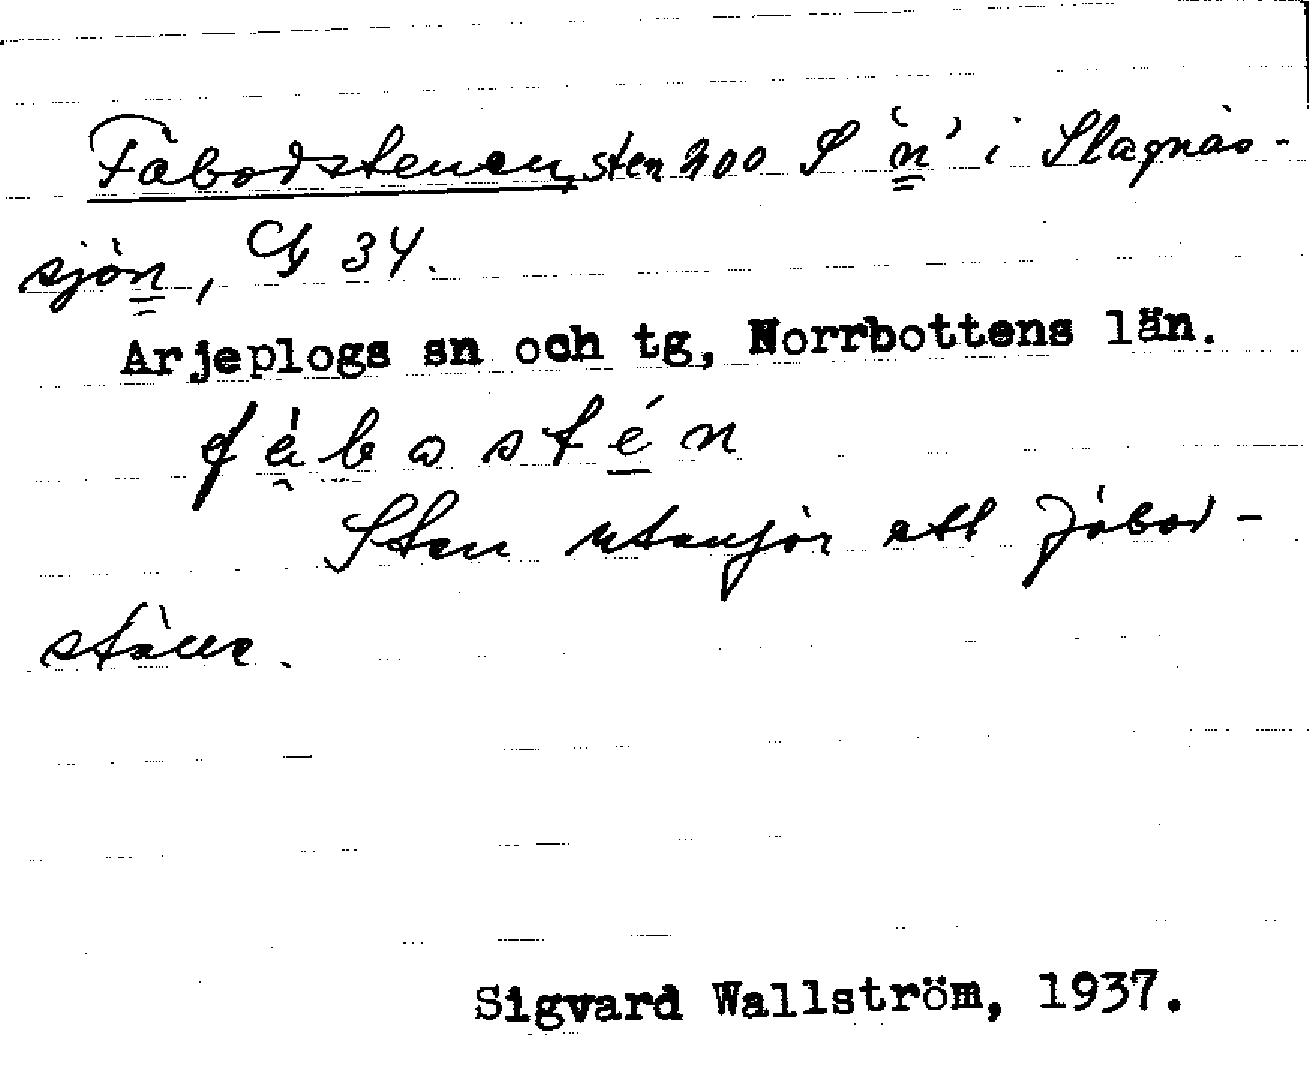 Fäbodstenen, sten 400 S "n" i Slagnäs-
sjön, G 34.
Arjeplogs sn och tg, Norrbottens län.
fä̀bostén
Sten utanför ett fäbod-
ställe.
Sigvard Wallström, 1937.